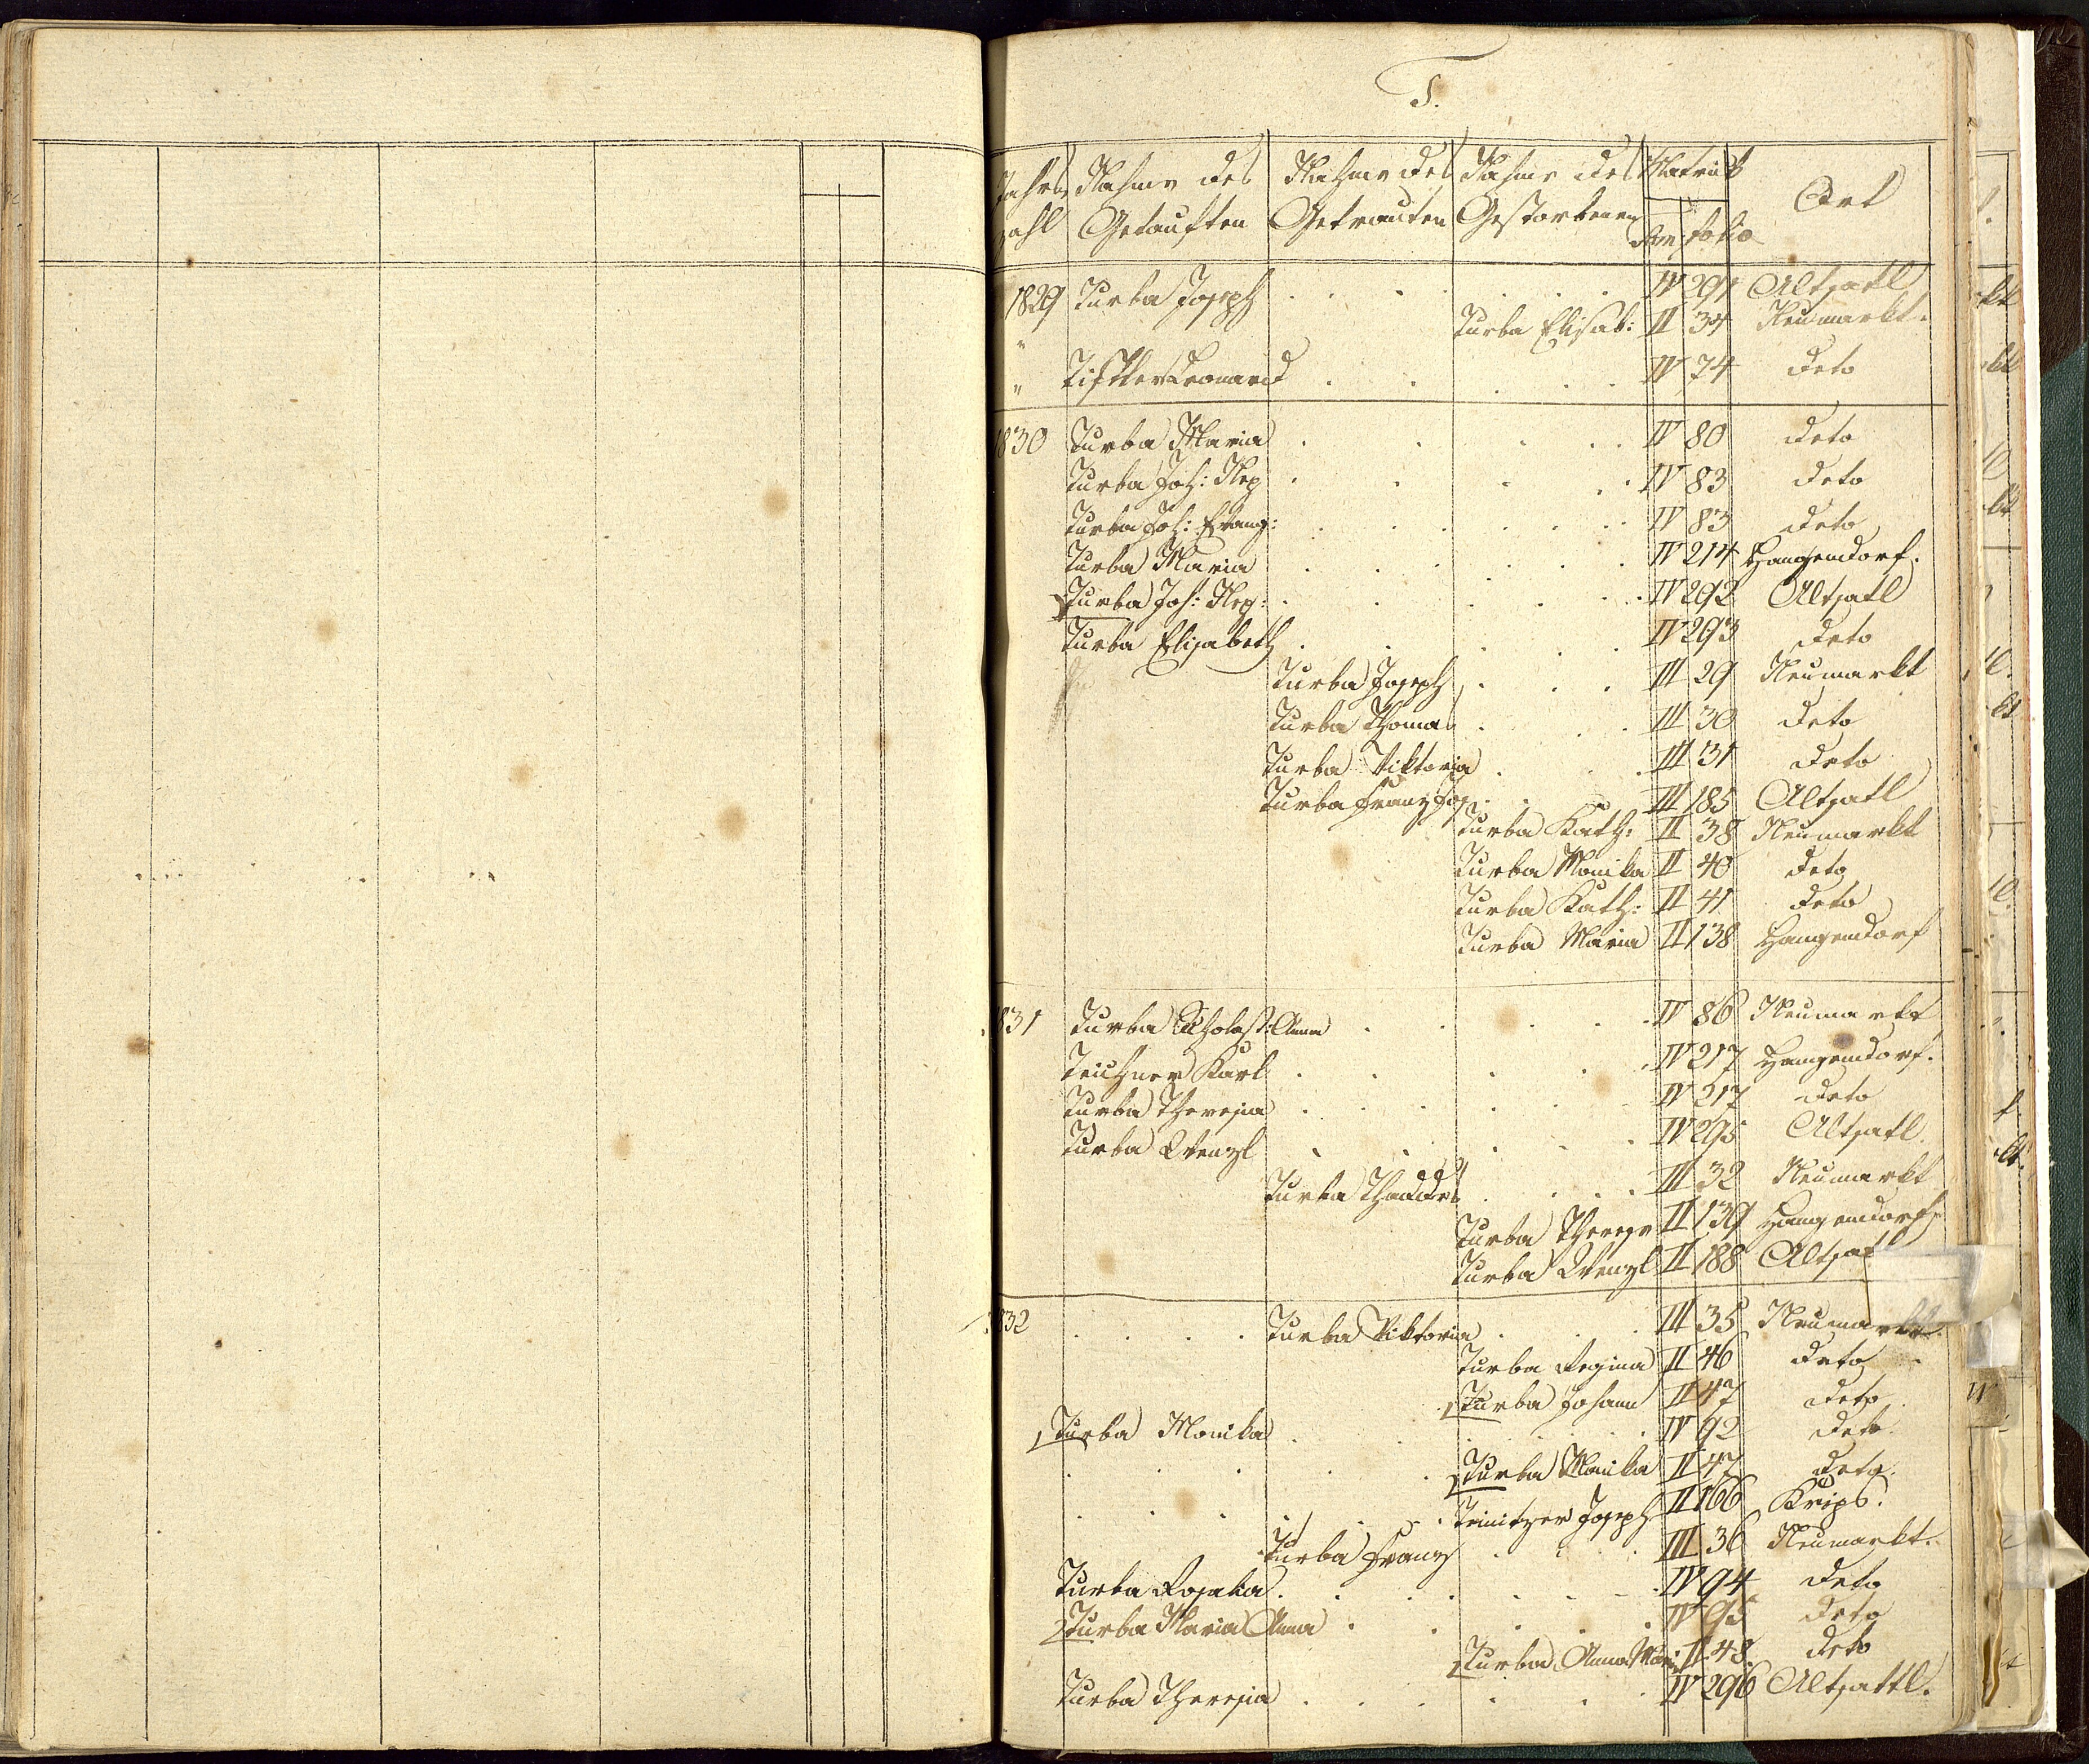 T.
Jahrs Nahme des Nahme des Nahme des Matrik Ort
zahl Getauften Getrauten Gestorbenen Tom: folio
1829 Turba Joseph IV 291 Altsatl
" Turba Elisab: II 34 Neumarkt.
" Leonard IV 74 deto
1830 Turba Maria IV 80 deto
Turba Joh: Nep IV 83 deto
Turba Joh: Evang: IV 83 deto
Turba Maria IV 214 Hangendorf.
Turba Joh: Nep: IV 292 Altsatl
Turba Elisabeth IV 293 deto
Turba Joseph III 29 Neumarkt
Turba Thomas III 30 deto
Turba Viktoria III 31 deto
Turba Franz Jos. III 185 Altsatl
Turba Kath: II 38 Neumarkt
Turba Monika II 40 deto
Turba Kath: II 41 deto
Turba Maria II 138 Hangendorf
1831 Turba Scholast: Anna IV 86 Neumarkt
Teichner Karl IV 217 Hangendorf.
Turba Theresia IV 217 deto
Turba Wenzl IV 295 Altsatl.
Turba Thaddes III 32 Neumarkt
Turba Theres II 139 Hangendorf
Turba Wenzl II 188 Altsat
1832 Turba Viktoria III 35 Neumarkt.
Turba Regina II 46 deto
Turba Johann II 47 deto
Turba Monika IV 92 deto
Turba Monika II 47 deto.
Joseph II 166 Krips.
Turba Franz III 36 Neumarkt.
Turba Rosalia IV 94 deto
Turba Maria Anna IV 95 deto
Turba Anna Mar: II 48. deto
Turba Theresia IV 296 Altsattl.